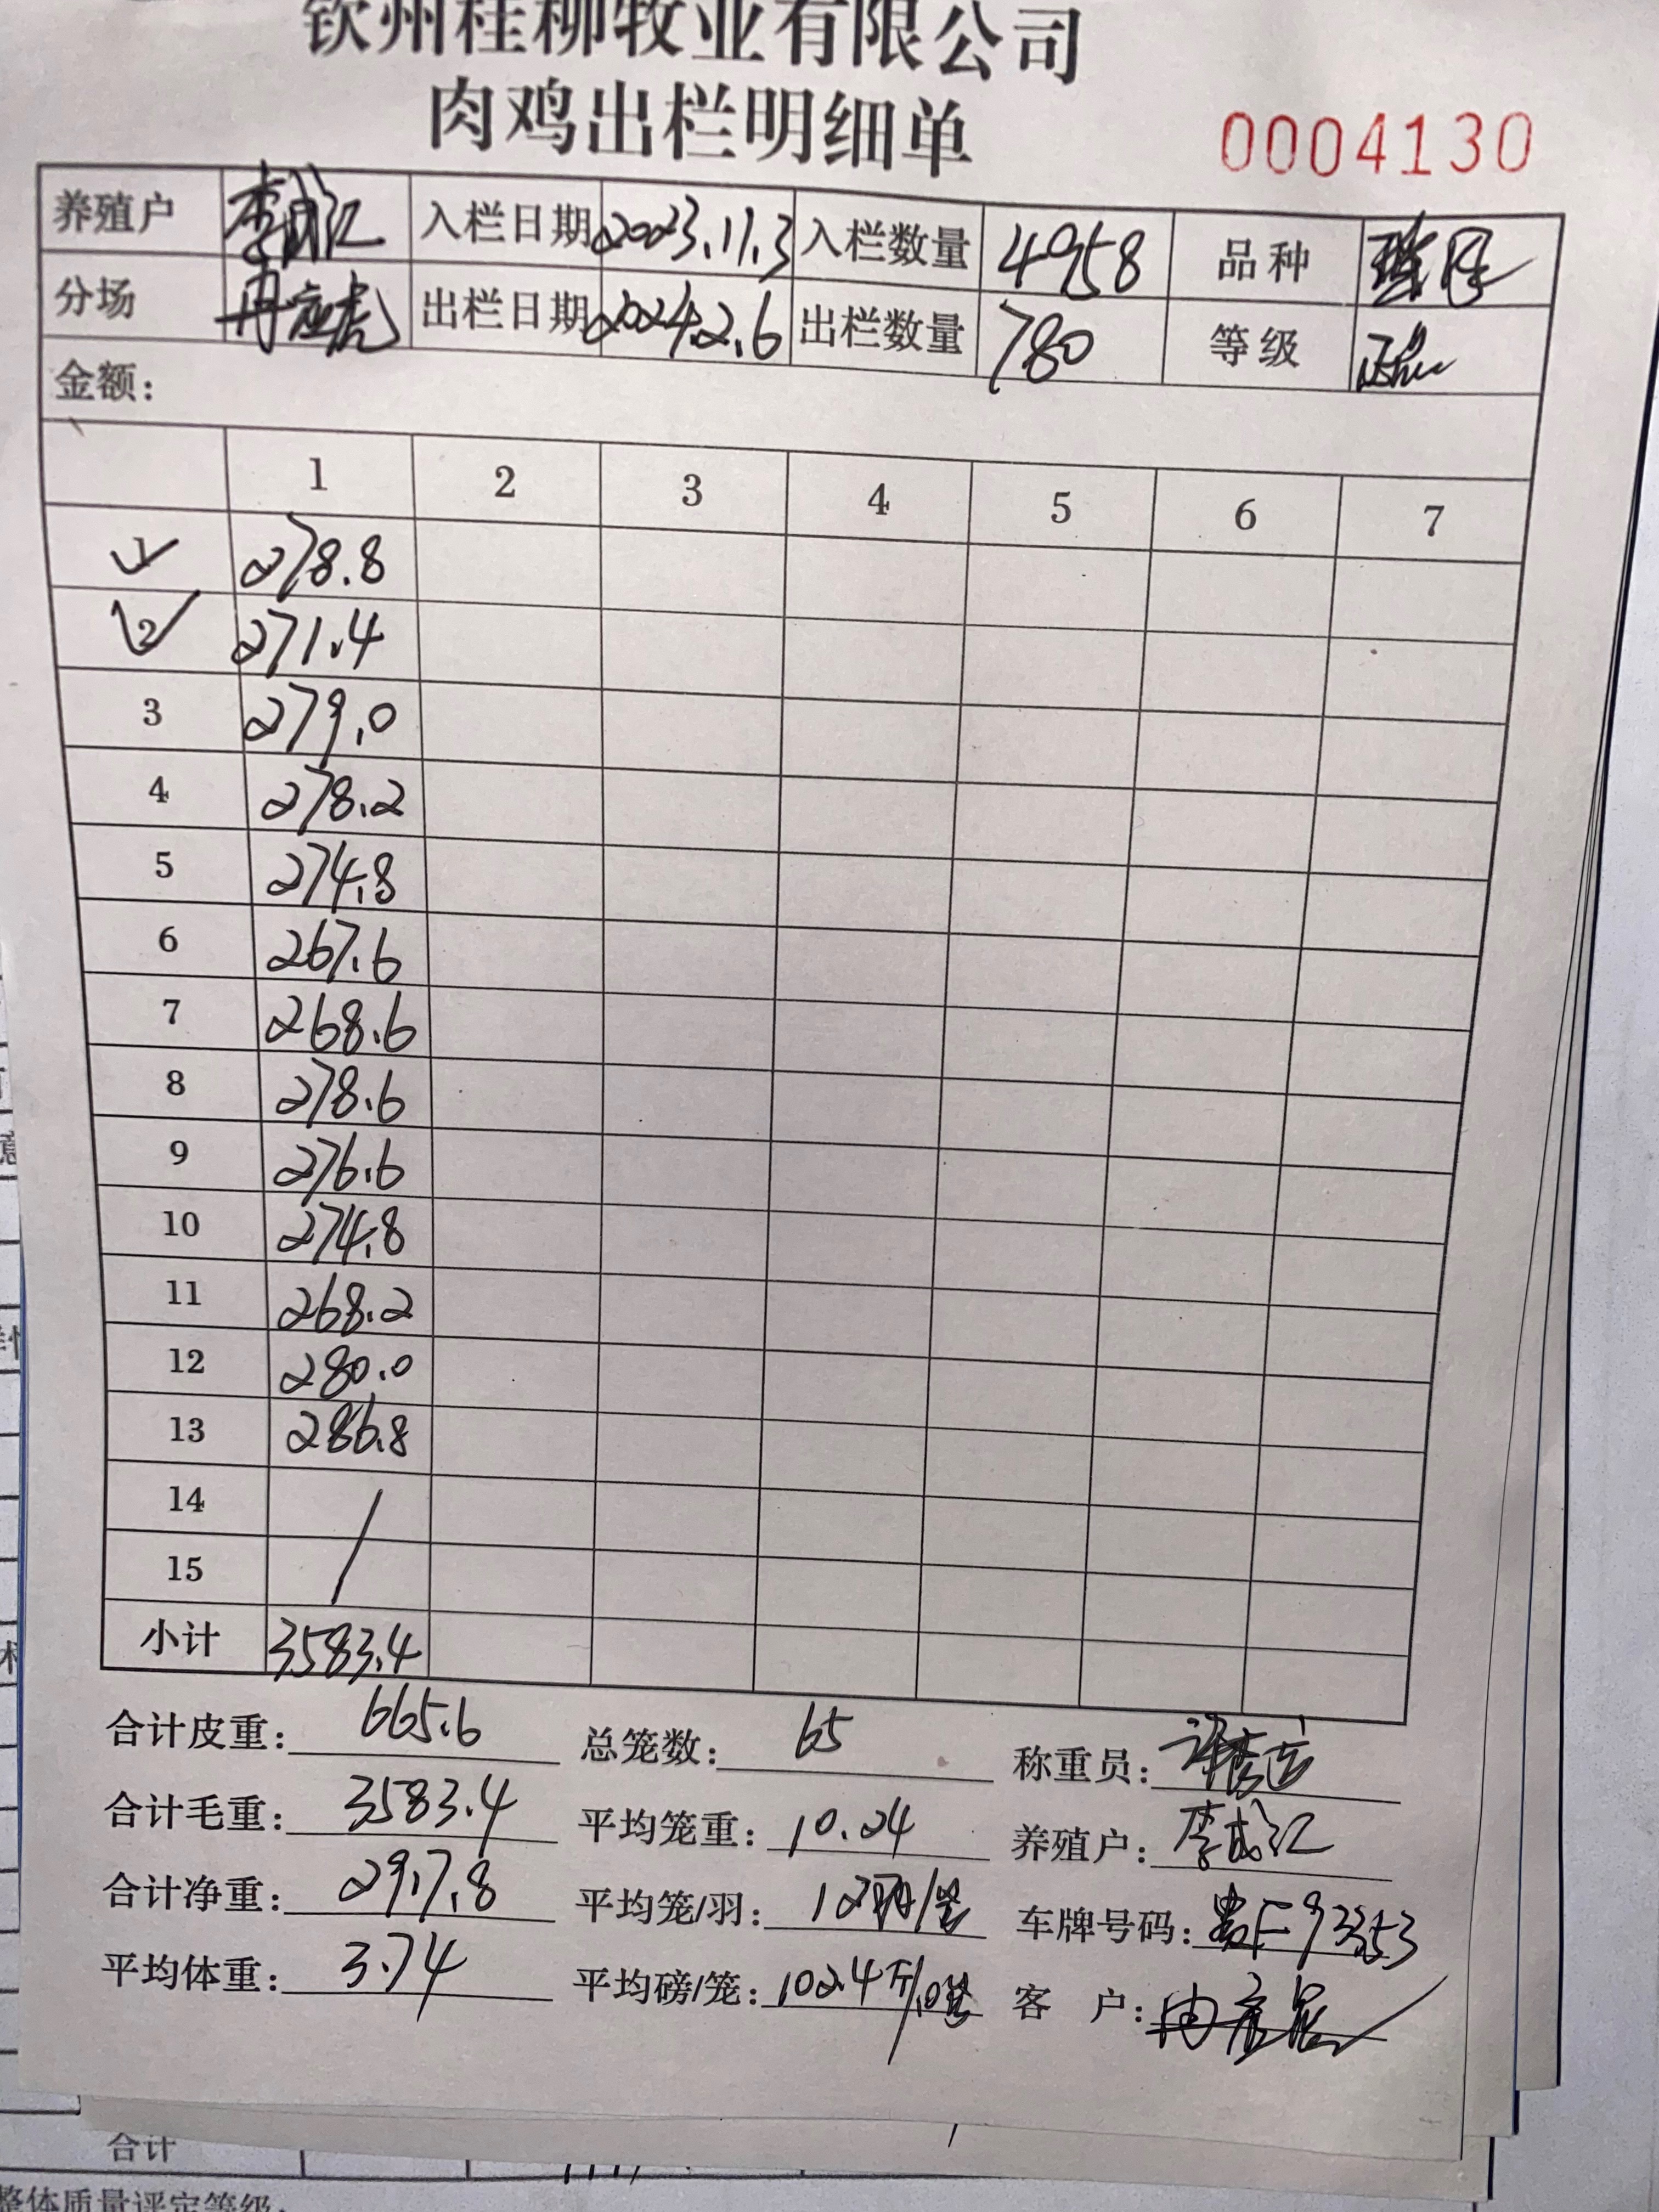 钦州桂柳牧业有限公司
肉鸡出栏明细单 0004130
养殖户 李成江 入栏日期 2023.11.3 入栏数量 4958 品种
分场 出栏日期 2024.2.6 出栏数量 780 等级
金额:
1 2 3 4 5 6 7
1 278.8
2 271.4
3 279.0
4 278.2
5 274.8
6 267.6
7 268.6
8 278.6
9 276.6
10 274.8
11 268.2
12 280.0
13 286.8
14 /
15
小计 3583.4
合计皮重: 665.6 总笼数: 65 称重员:
合计毛重: 3583.4 平均笼重: 10.24 养殖户: 李成江
合计净重: 2917.8 平均笼/羽: 12羽/笼 车牌号码: 贵F93353
平均体重: 3.74 平均磅/笼: 102.4斤/ 客 户:
合计
整体质量评定等级: